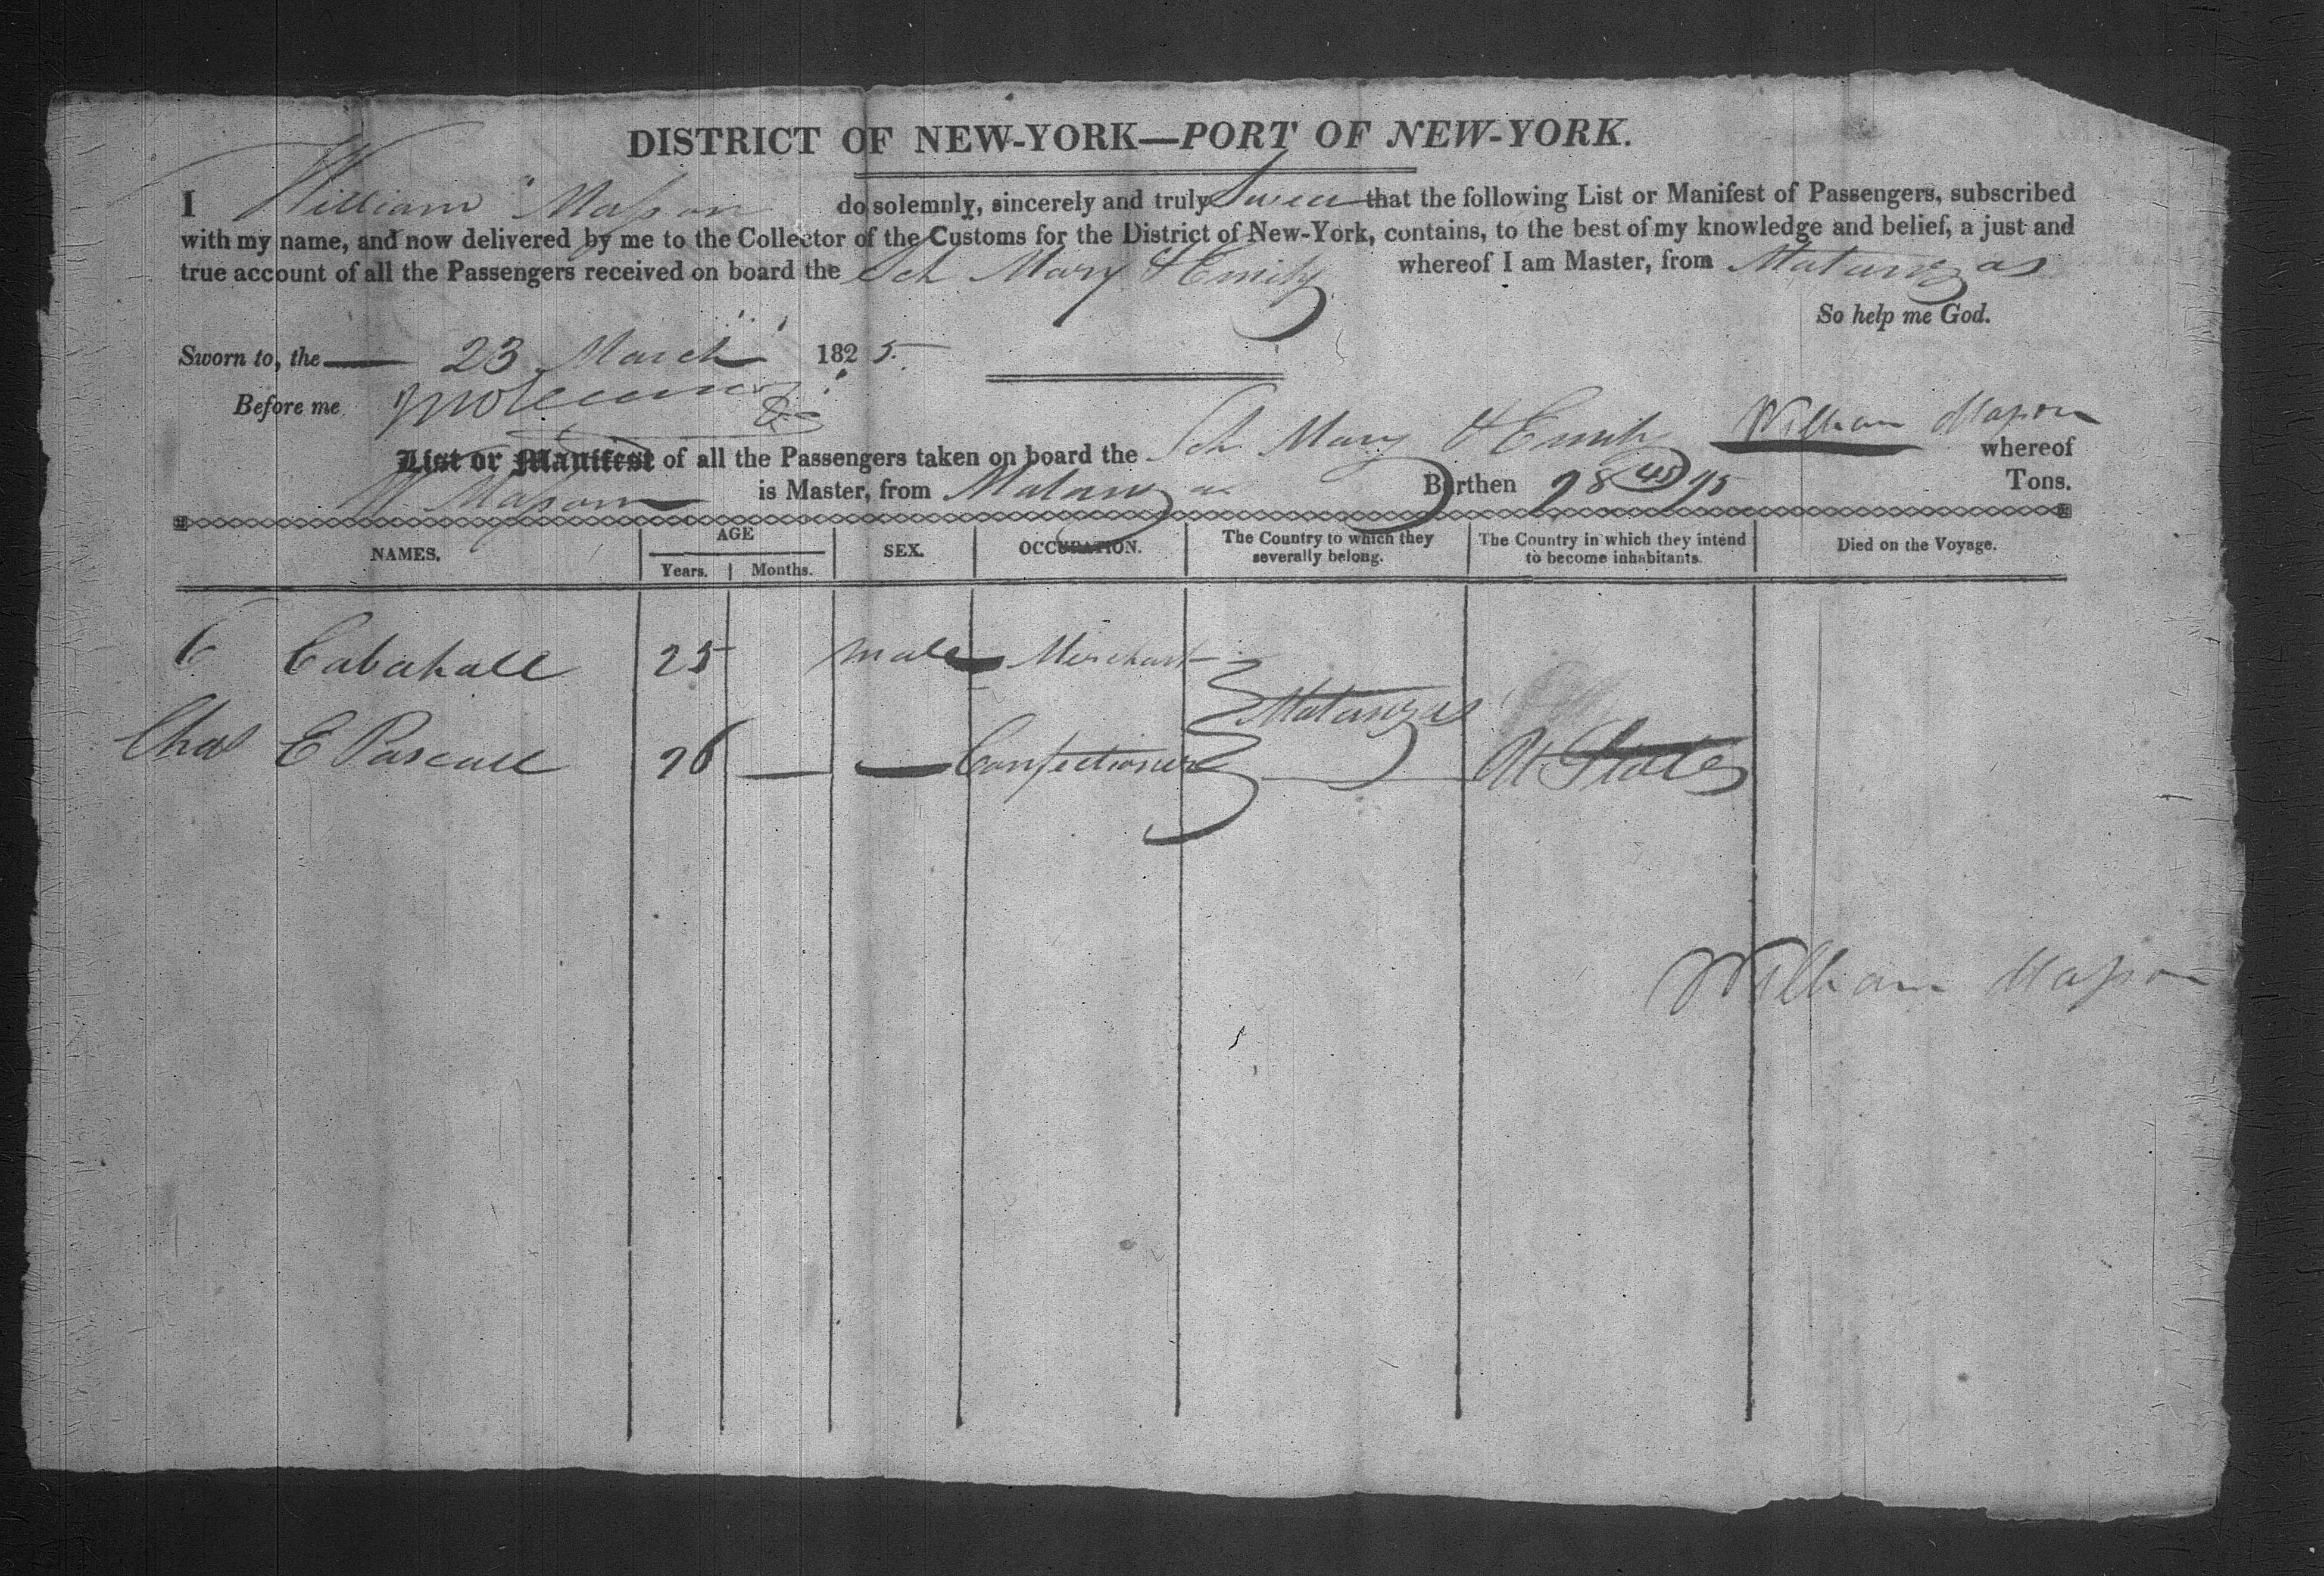 DISTRICT OF NEW-YORK—PORT OF NEW-YORK.
I William Mason do solemnly, sincerely and truly Swear that the following List or Manifest of Passengers, subscribed
with my name, and now delivered by me to the Collector of the Customs for the District of New-York, contains, to the best of my knowledge and belief, a just and
true account of all the Passengers received on board the Sch Mary & Emily whereof I am Master, from Matanzas
So help me God.
Sworn to, the 23 March 1825.
Before me
William Mason
List or Manifest of all the Passengers taken on board the Sch Mary & Emily whereof
W Mason is Master, from Matanzas Burthen 98 45/95 Tons.
NAMES. AGE Years. Months. SEX. OCCUPATION. The Country to which they severally belong. The Country in which they intend to become inhabitants. Died on the Voyage.
Cabahall 25 male Merchant
Matanzas
Chas E Pascall 26 — — Confectioner U States
William Mason